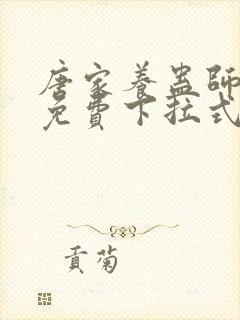 唐家養蠱師
免費下拉式
貢菊